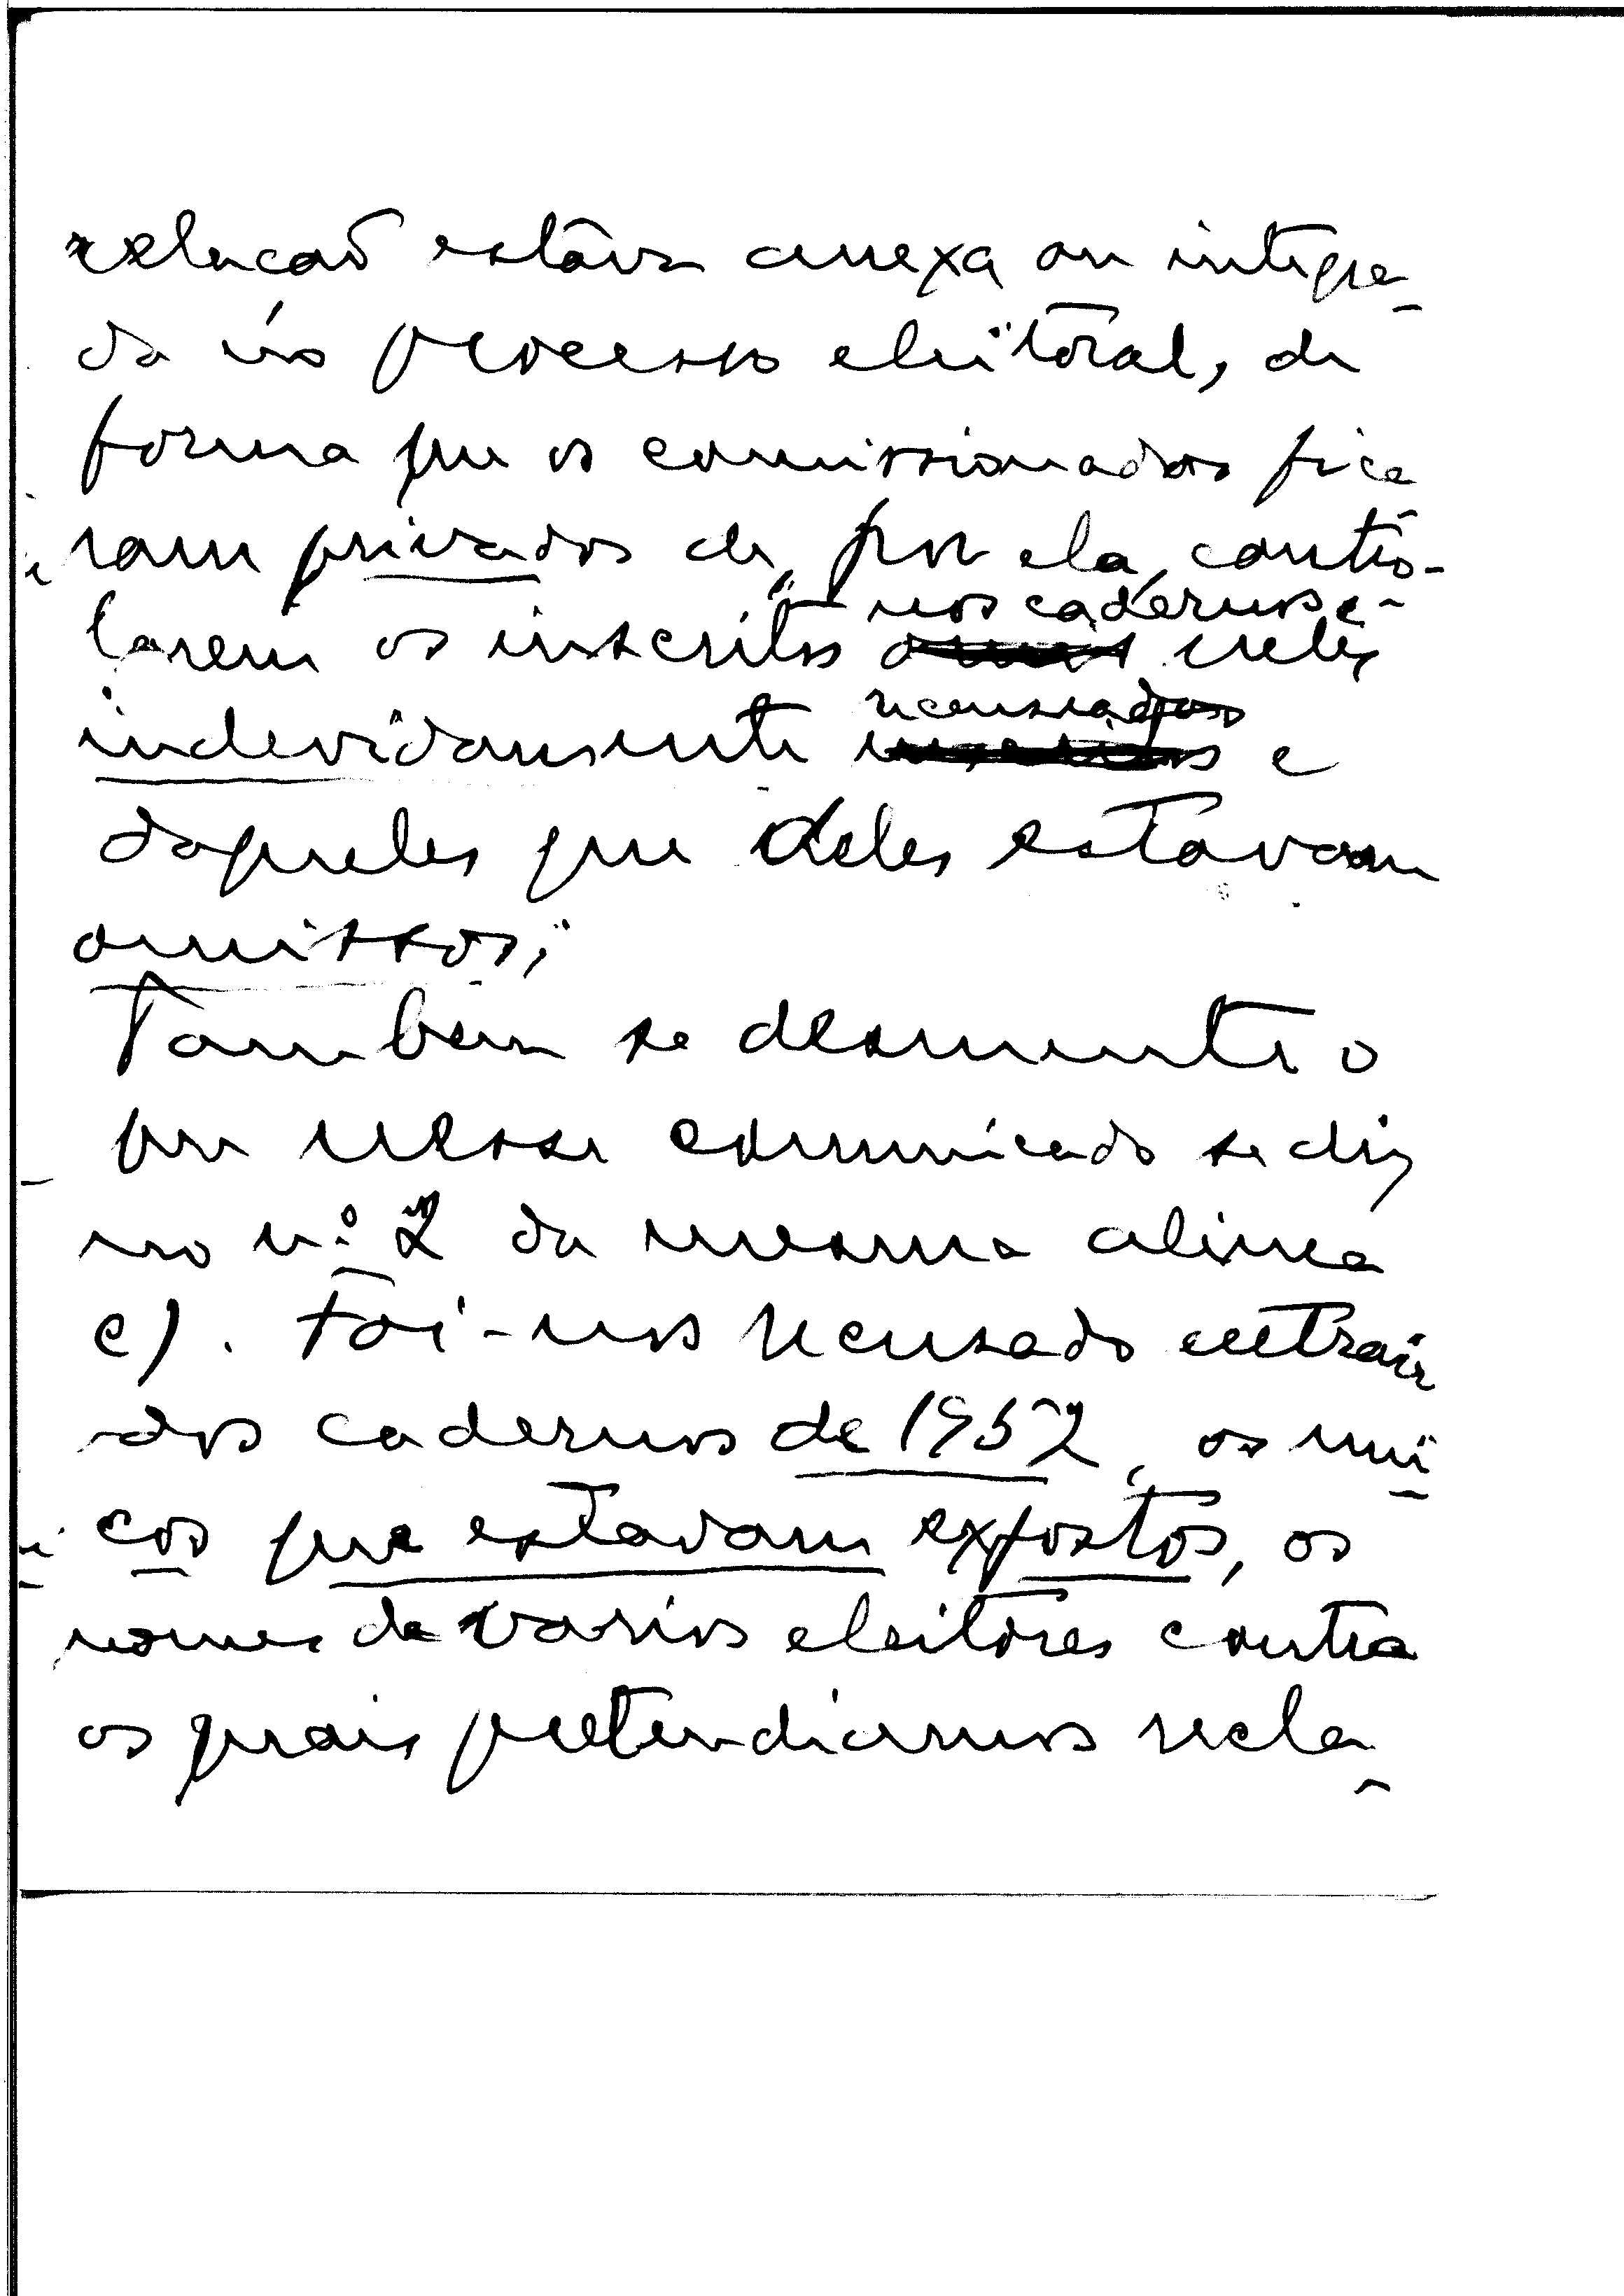 relacaõ estáva anexa ou integra-
da no processo eleitoral, de
forma que os comissionados fica
ram privados de, por ela, contro-
larem os inscritos nos cadernos e neles
indevidamente recenseados e
daqueles que deles estavam
omissos;
Tambem se desmente o
que nesse comunicado se diz
no nº 2 da mesma alinea
c). Foi-nos recusado extrair
dos cadernos de 1952, os uni-
cos que estavam expostos, os
nomes de varios eleitores contra
os quais pretendiamos recla-